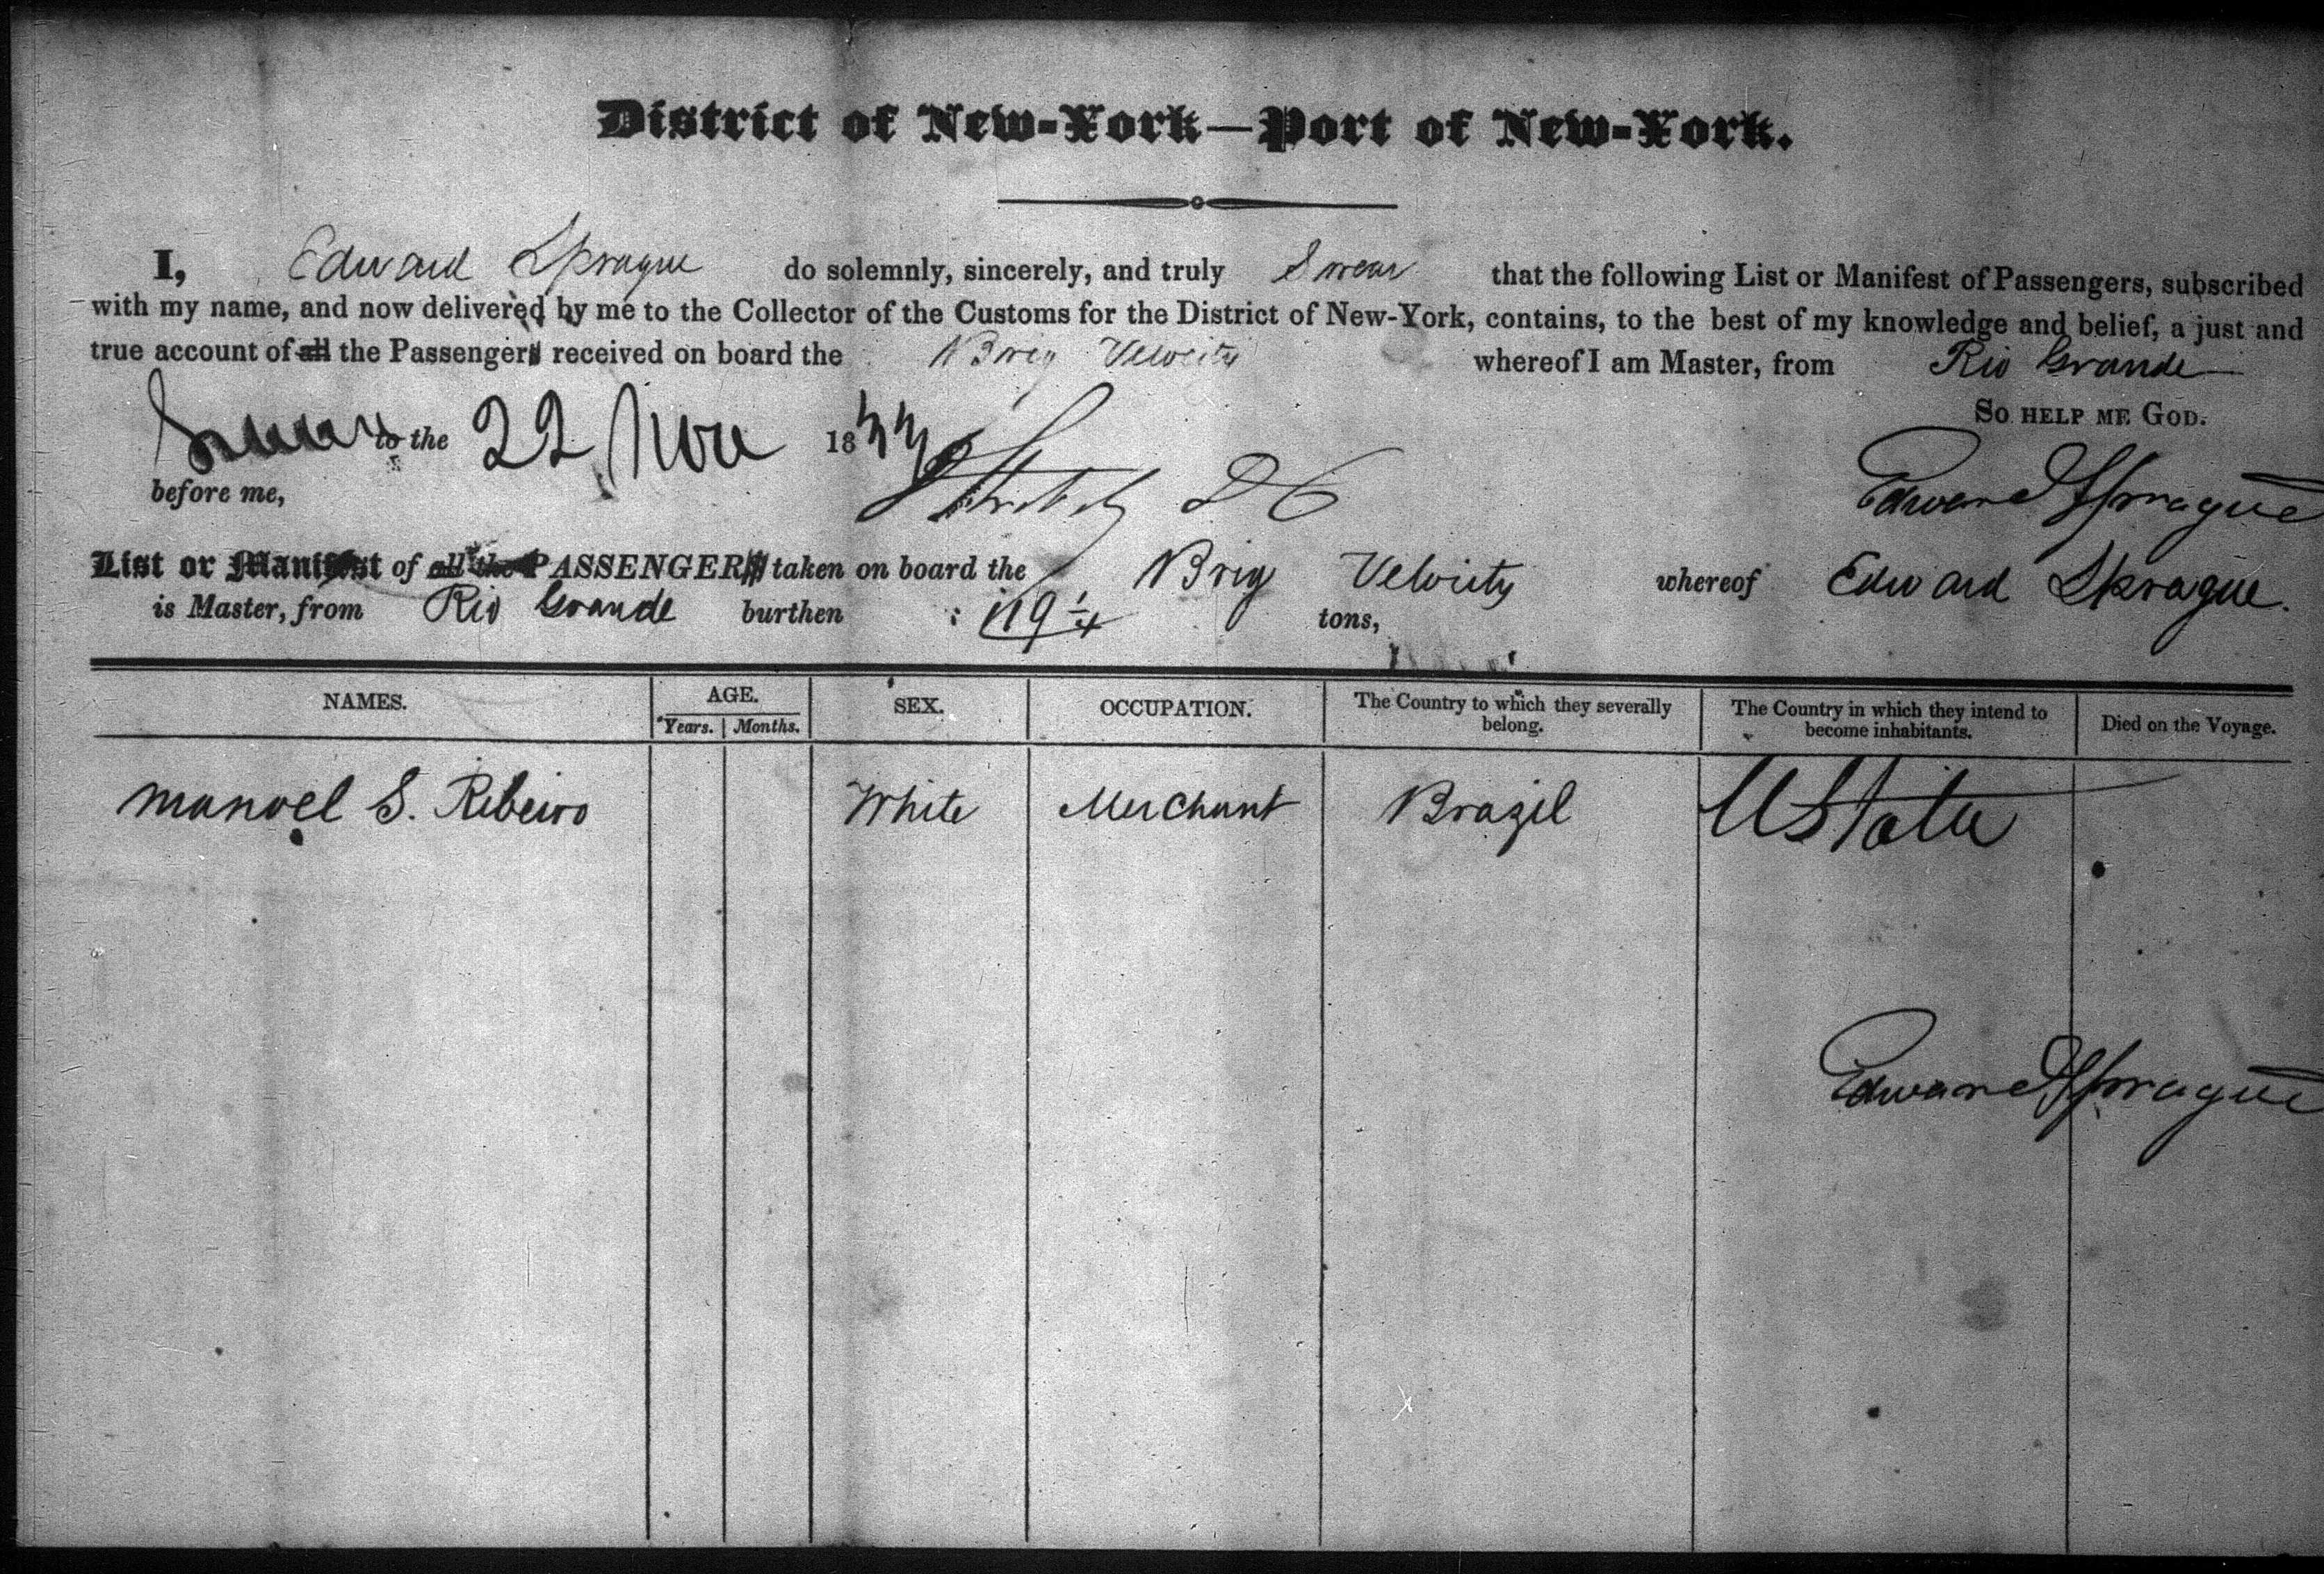 District of New-York—Port of New-York.
I, Edward Sprague do solemnly, sincerely, and truly Swear that the following List or Manifest of Passengers, subscribed
with my name, and now delivered by me to the Collector of the Customs for the District of New-York, contains, to the best of my knowledge and belief, a just and
true account of all the Passengers received on board the Brig Velocity whereof I am Master, from Rio Grande
So help me God.
Sworn to the 22 Nov 1833
before me,
Edward Sprague
List or Manifest of all the PASSENGERS taken on board the Brig Velocity whereof Edward Sprague.
is Master, from Rio Grande burthen 119 1/4 tons,
NAMES. AGE. SEX. OCCUPATION. The Country to which they severally belong. The Country in which they intend to become inhabitants. Died on the Voyage.
Years. Months.
Manoel S. Ribeiro White Merchant Brazil U States
Edward Sprague